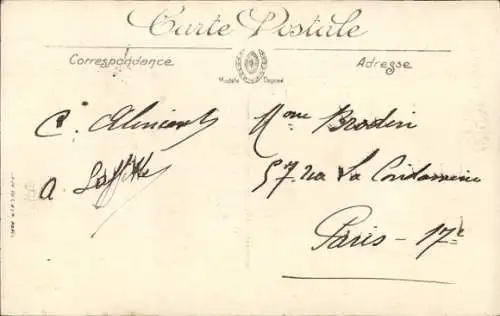 Carte Postale
Correspondance
Adresse
Modèle Déposé
C.
A Laffitte
Mme Brodin
57. rue La Condamine
Paris - 17e